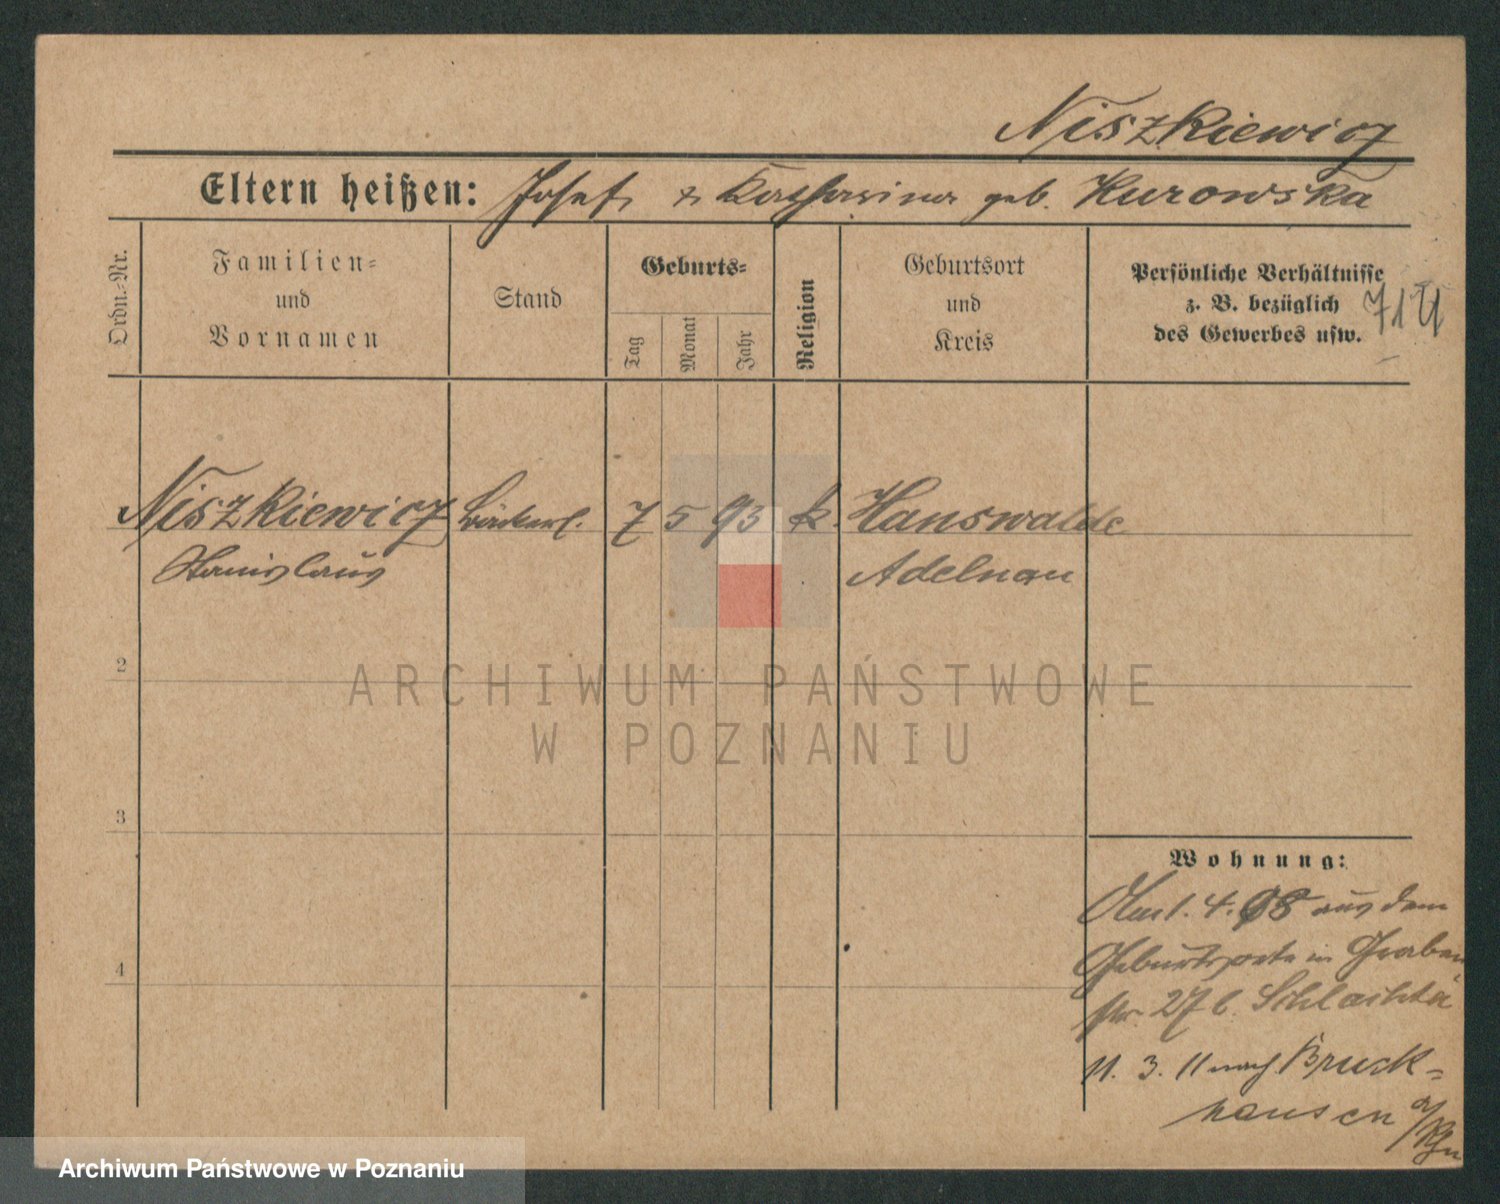 Niszkiewicz
Eltern heißen: Josef & Katharina geb. Kurowska
Ordn.-Nr.
Familien-
und
Vornamen
Stand
Geburts-
Tag
Monat
Jahr
Religion
Geburtsort
und
Kreis
Persönliche Verhältnisse
z. B. bezüglich
des Gewerbes usw.
Niszkiewicz Bäckerl. 7 5 93 k. Hanswalde
Stanislaus Adelnau
2
ARCHIWUM PAŃSTWOWE
W POZNANIU
3
Wohnung:
4. 08 aus dem
Geburtsorte in Graben
str. 27 b. Schlachta
4
11. 3. 11 nach Bruck-
hausen a/Rhn
Archiwum Państwowe w Poznaniu